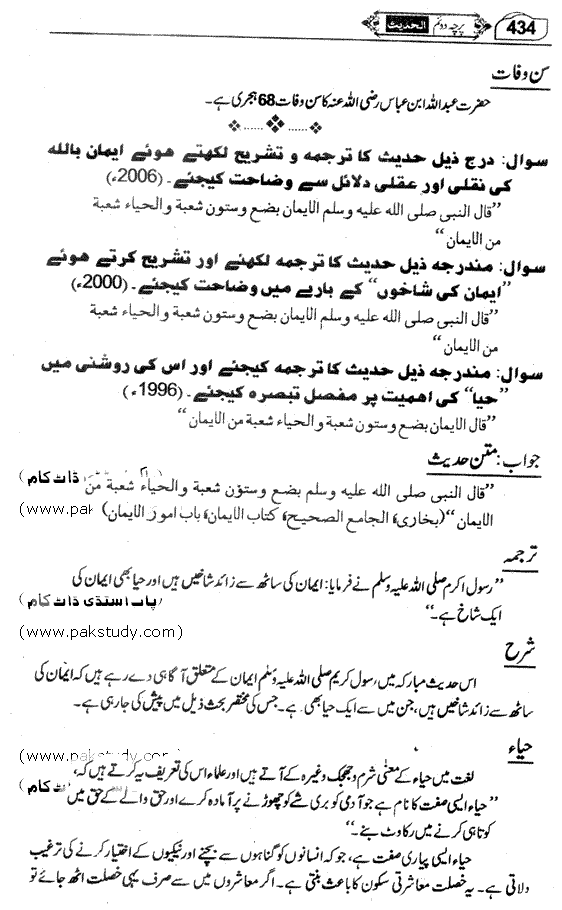 434 پرچہ دوئم الحدیث
سن وفات
حضرت عبداللہ ابن عباس رضی اللہ عنہ کا سن وفات 68 ہجری ہے۔
سوال: درج ذیل حدیث کا ترجمہ و تشریح لکھتے ہوئے ایمان باللہ
کی نقلی اور عقلی دلائل سے وضاحت کیجئے۔ (2006ء)
”قال النبی صلی الله علیه وسلم الایمان بضع وستون شعبة والحیاء شعبة
من الایمان“
سوال: مندرجہ ذیل حدیث کا ترجمہ لکھئے اور تشریح کرتے ہوئے
”ایمان کی شاخوں“ کے بارے میں وضاحت کیجئے۔ (2000ء)
”قال النبی صلی الله علیه وسلم الایمان بضع وستون شعبة والحیاء شعبة
من الایمان“
سوال: مندرجہ ذیل حدیث کا ترجمہ کیجئے اور اس کی روشنی میں
”حیا“ کی اہمیت پر مفصل تبصرہ کیجئے۔ (1996ء)
”قال الایمان بضع وستون شعبة والحیاء شعبة من الایمان“
جواب: متن حدیث
”قال النبی صلی الله علیه وسلم بضع وستون شعبة والحیاء شعبة من
ڈاٹ کام)
الایمان“ (بخاری، الجامع الصحیح، کتاب الایمان، باب امور الایمان)
(www.pak
ترجمہ
”رسول اکرم صلی اللہ علیہ وسلم نے فرمایا: ایمان کی ساٹھ سے زائد شاخیں ہیں اور حیا بھی ایمان کی
ایک شاخ ہے۔“
پاک اسٹڈی ڈاٹ کام)
(www.pakstudy.com)
شرح
اس حدیث مبارکہ میں رسول کریم صلی اللہ علیہ وسلم ایمان کے متعلق آگاہی دے رہے ہیں کہ ایمان کی
ساٹھ سے زائد شاخیں ہیں، جن میں سے ایک حیا بھی ہے۔ جس کی مختصر بحث ذیل میں پیش کی جا رہی ہے۔
حیاء
(www.pakstudy.com
لغت میں حیاء کے معنی شرم و جھجک وغیرہ کے آتے ہیں اور علماء اس کی تعریف یہ کرتے ہیں کہ،
ڈاٹ کام)
”حیاء ایسی صفت کا نام ہے جو آدمی کو بری شے کو چھوڑنے پر آمادہ کرے اور حق والے کے حق میں
کوتاہی کرنے میں رکاوٹ بنے۔“
حیاء ایسی پیاری صفت ہے، جو کہ انسانوں کو گناہوں سے بچنے اور نیکیوں کے اختیار کرنے کی ترغیب
دلاتی ہے۔ یہ خصلت معاشرتی سکون کا باعث بنتی ہے۔ اگر معاشروں میں سے صرف یہی خصلت اٹھ جائے تو